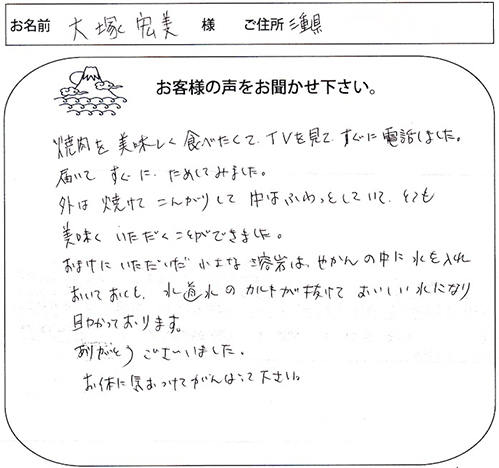 お名前 大塚 宏美 様 ご住所 三重県
お客様の声をお聞かせ下さい。
焼肉を美味しく食べたくて、TVを見て、すぐに電話しました。
届いて すぐに ためしてみました。
外は 焼けて こんがりして 中はふわっとしていて、とても
美味く いただくことができました。
おまけにいただいだ 小さな溶岩は、やかんの中に 水を入れ
おいておくと、水道水の カルキが抜けて おいしい水になり
助かっております。
ありがとう ございました。
お体に気おつけてがんばって下さい。